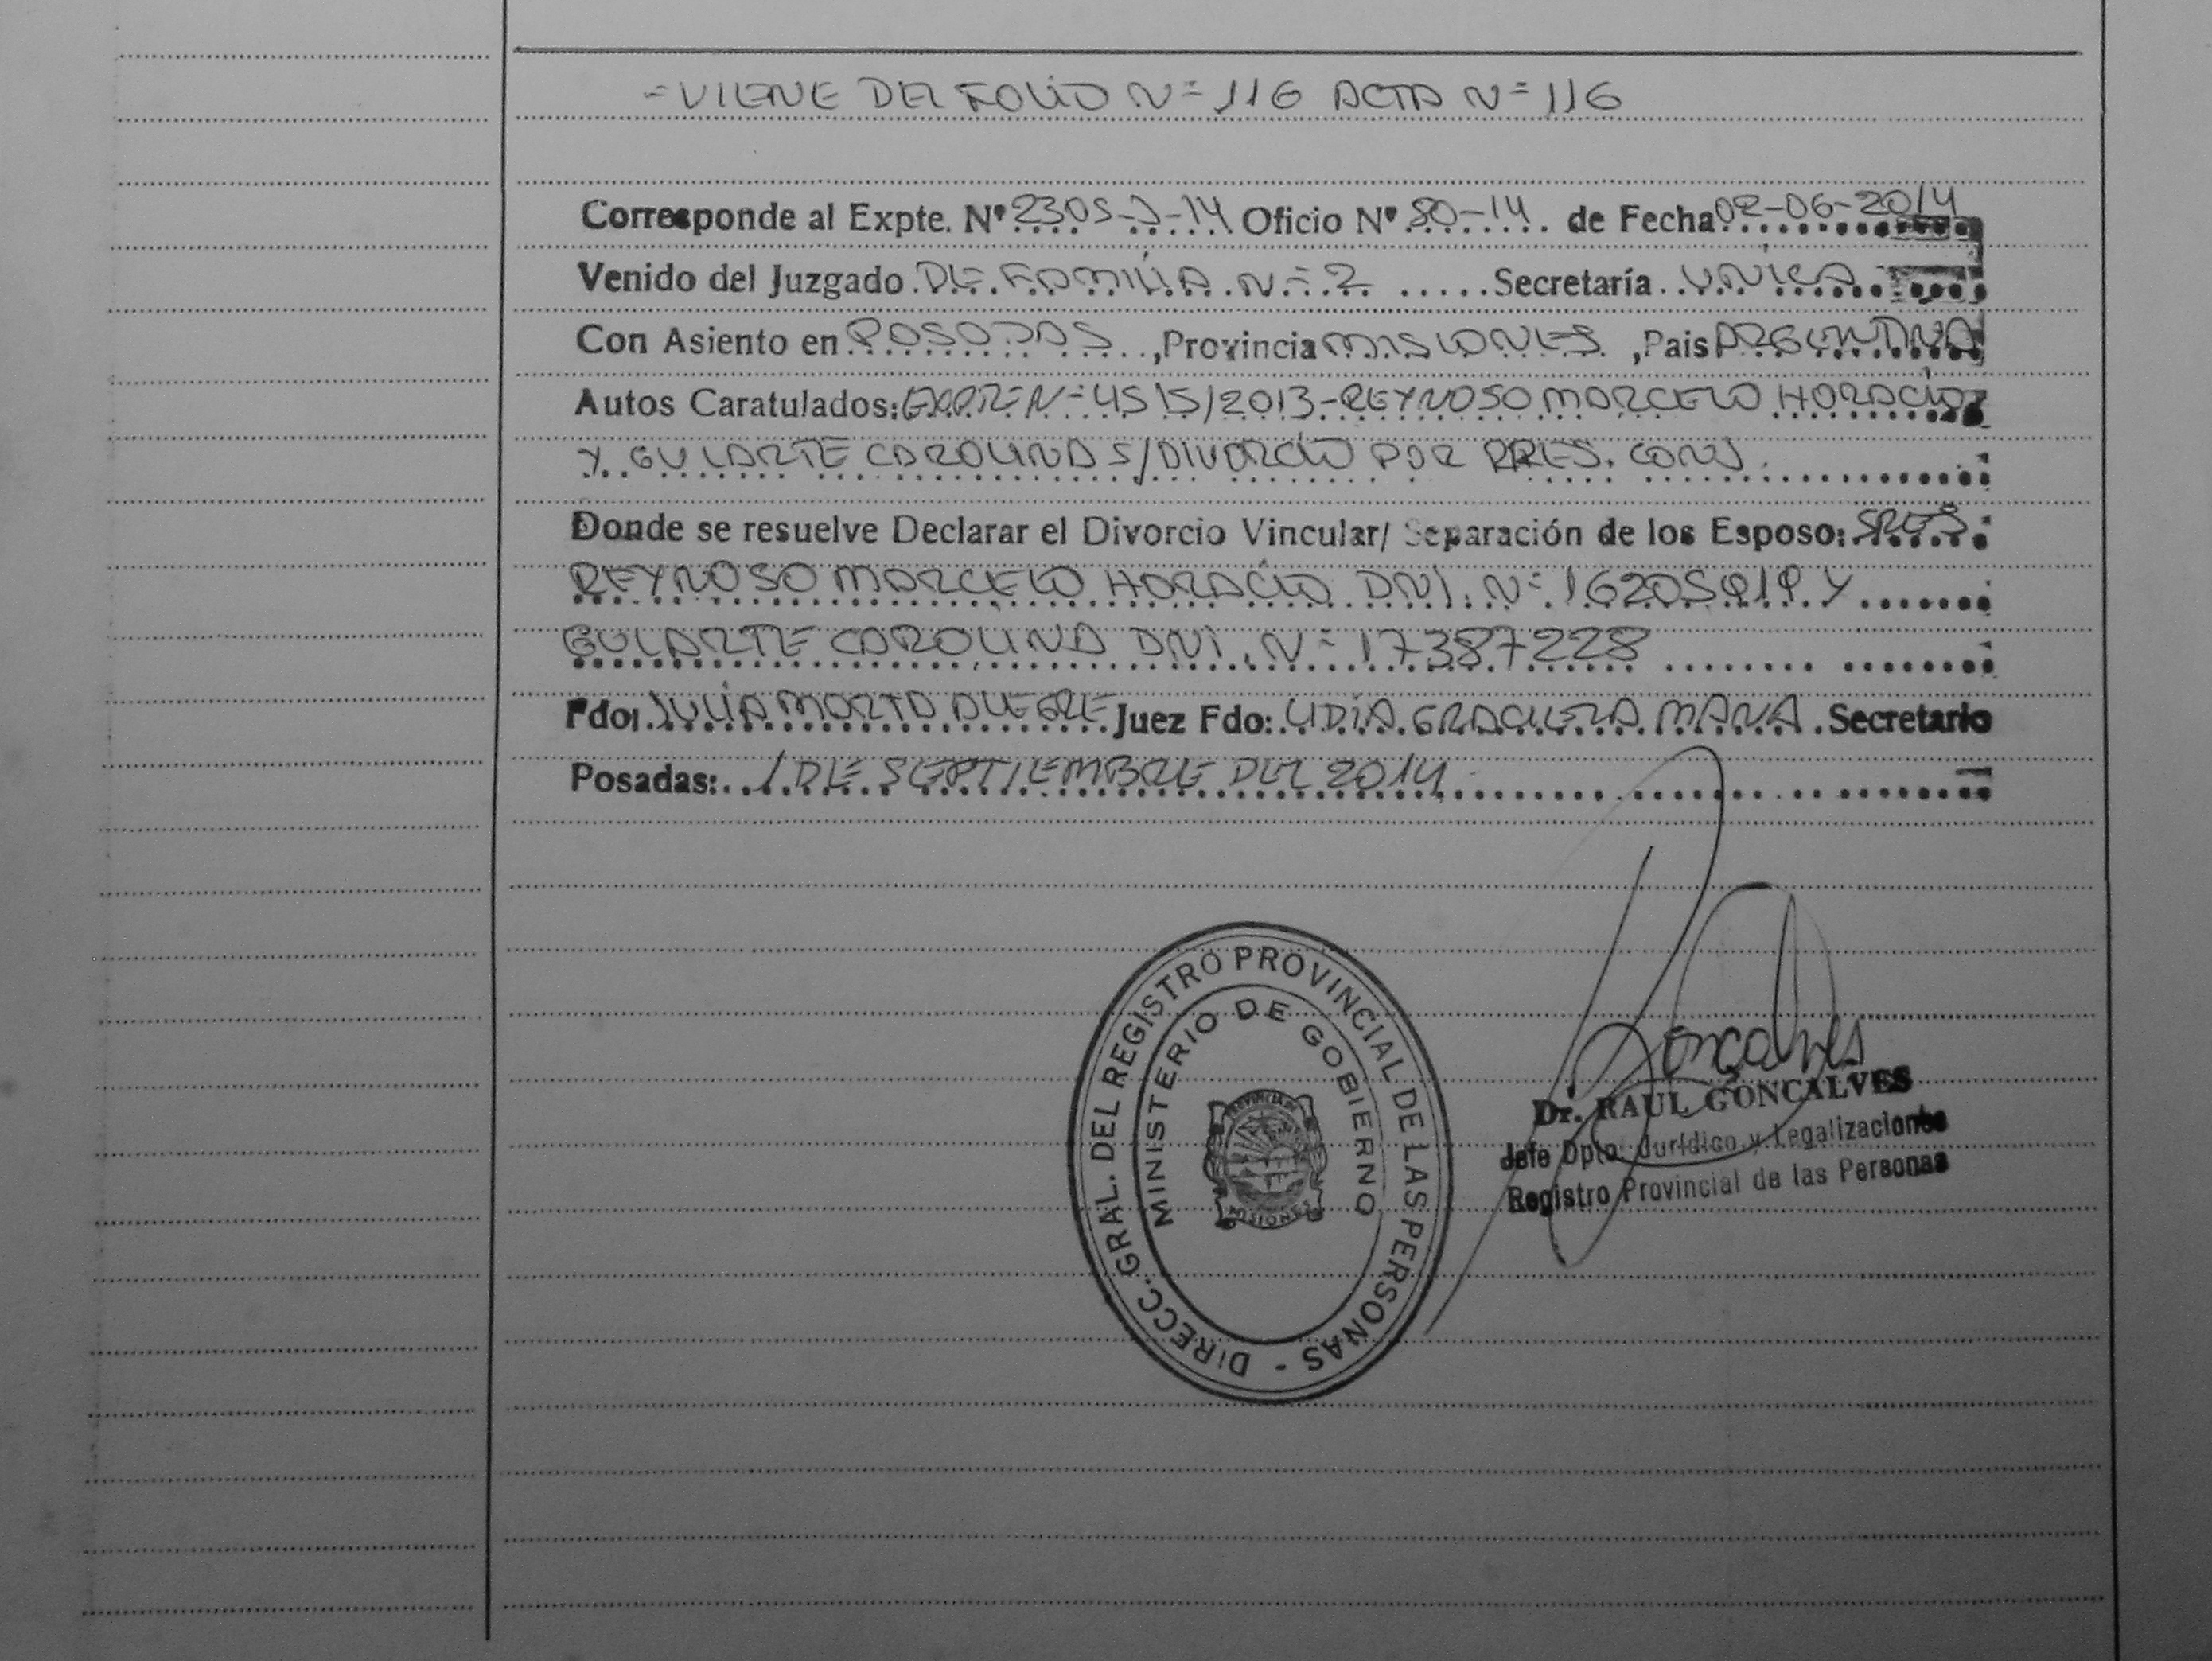 = VIENE DEL FOLIO N= 116 ACTA N= 116
Corresponde al Expte. Nº 2305-J-14 Oficio Nº 80-14. de Fecha 02-06-2014
Venido del Juzgado DE FAMILIA N=2 ..... Secretaría UNICA
Con Asiento en POSADAS, Provincia MISIONES, Pais ARGENTINA
Autos Caratulados: EXPTE N= 4515/2013-REYNOSO MARCELO HORACIO
Y GULARTE CAROLINA S/DIVORCIO POR PRES. CONJ.
Donde se resuelve Declarar el Divorcio Vincular/ Separación de los Esposo: SRES
REYNOSO MARCELO HORACIO DNI. N= Y
GULARTE CAROLINA DNI. N= 17387228
Fdo: JULIA MARTA ALEGRE Juez Fdo: LIDIA GRACIELA MAÑA. Secretario
Posadas: 1 DE SEPTIEMBRE DEL 2014
DIRECC. GRAL. DEL REGISTRO PROVINCIAL DE LAS PERSONAS -
MINISTERIO DE GOBIERNO
PROVINCIA DE
MISIONES
Goncalves
Dr. RAUL GONCALVES
Jefe Dpto. Jurídico y Legalizaciones
Registro Provincial de las Personas